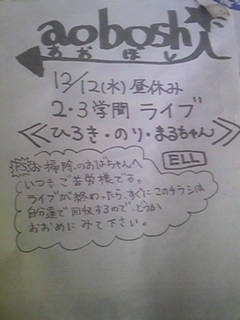 aoboshi
あおぼし
12/12(水) 昼休み
2・3学間 ライブ
≪ひろき・のり・まるちゃん≫
ELL
PSお掃除のおばちゃんへ
いつもご苦労様です。
ライブが終わったら、すぐにこのチラシは
自分達で回収するので、どうか
おおめにみて下さい。